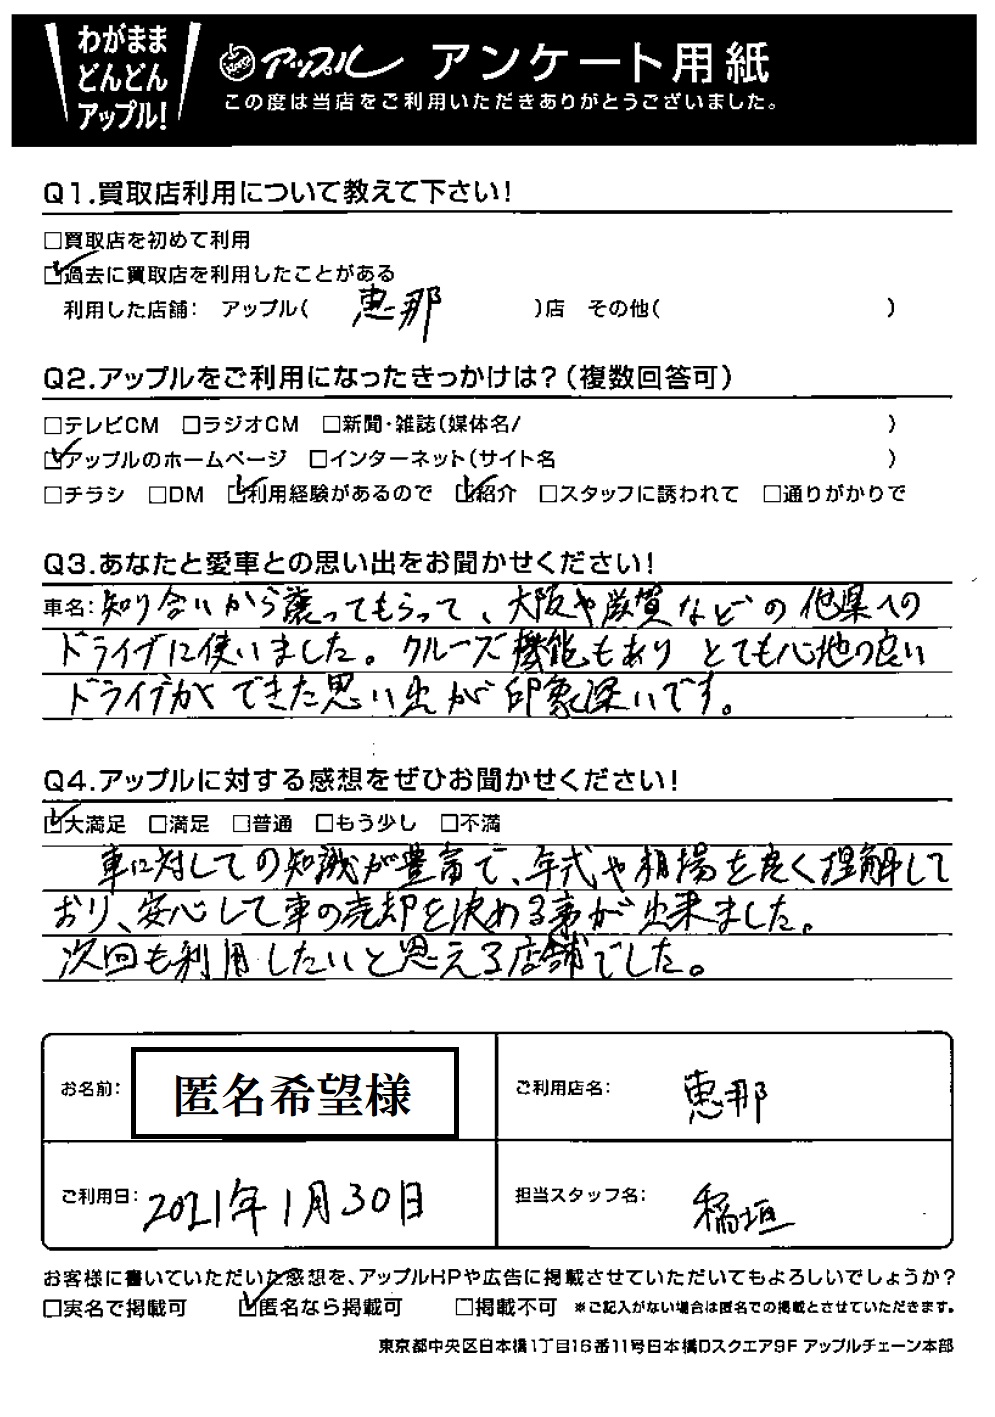 わがまま
どんどん
アップル!
アップル アンケート用紙
この度は当店をご利用いただきありがとうございました。
Q1.買取店利用について教えて下さい!
□買取店を初めて利用
☑過去に買取店を利用したことがある
利用した店舗: アップル( 恵那 )店 その他( )
Q2.アップルをご利用になったきっかけは?(複数回答可)
□テレビCM □ラジオCM □新聞・雑誌(媒体名/ )
☑アップルのホームページ □インターネット(サイト名 )
□チラシ □DM ☑利用経験があるので ☑紹介 □スタッフに誘われて □通りがかりで
Q3.あなたと愛車との思い出をお聞かせください!
車名: 知り合いから譲ってもらって、大阪や滋賀などの他県への
ドライブに使いました。クルーズ機能もあり とても心地の良い
ドライブができた思い出が印象深いです。
Q4.アップルに対する感想をぜひお聞かせください!
☑大満足 □満足 □普通 □もう少し □不満
車に対しての知識が豊富で、年式や相場を良く理解して
おり、安心して車の売却を決める事が出来ました。
次回も利用したいと思える店舗でした。
お名前: 匿名希望様 ご利用店名: 恵那
ご利用日: 2021年1月30日 担当スタッフ名: 稲垣
お客様に書いていただいた感想を、アップルHPや広告に掲載させていただいてもよろしいでしょうか?
□実名で掲載可 ☑匿名なら掲載可 □掲載不可 ※ご記入がない場合は匿名での掲載とさせていただきます。
東京都中央区日本橋1丁目16番11号日本橋Dスクエア9F アップルチェーン本部